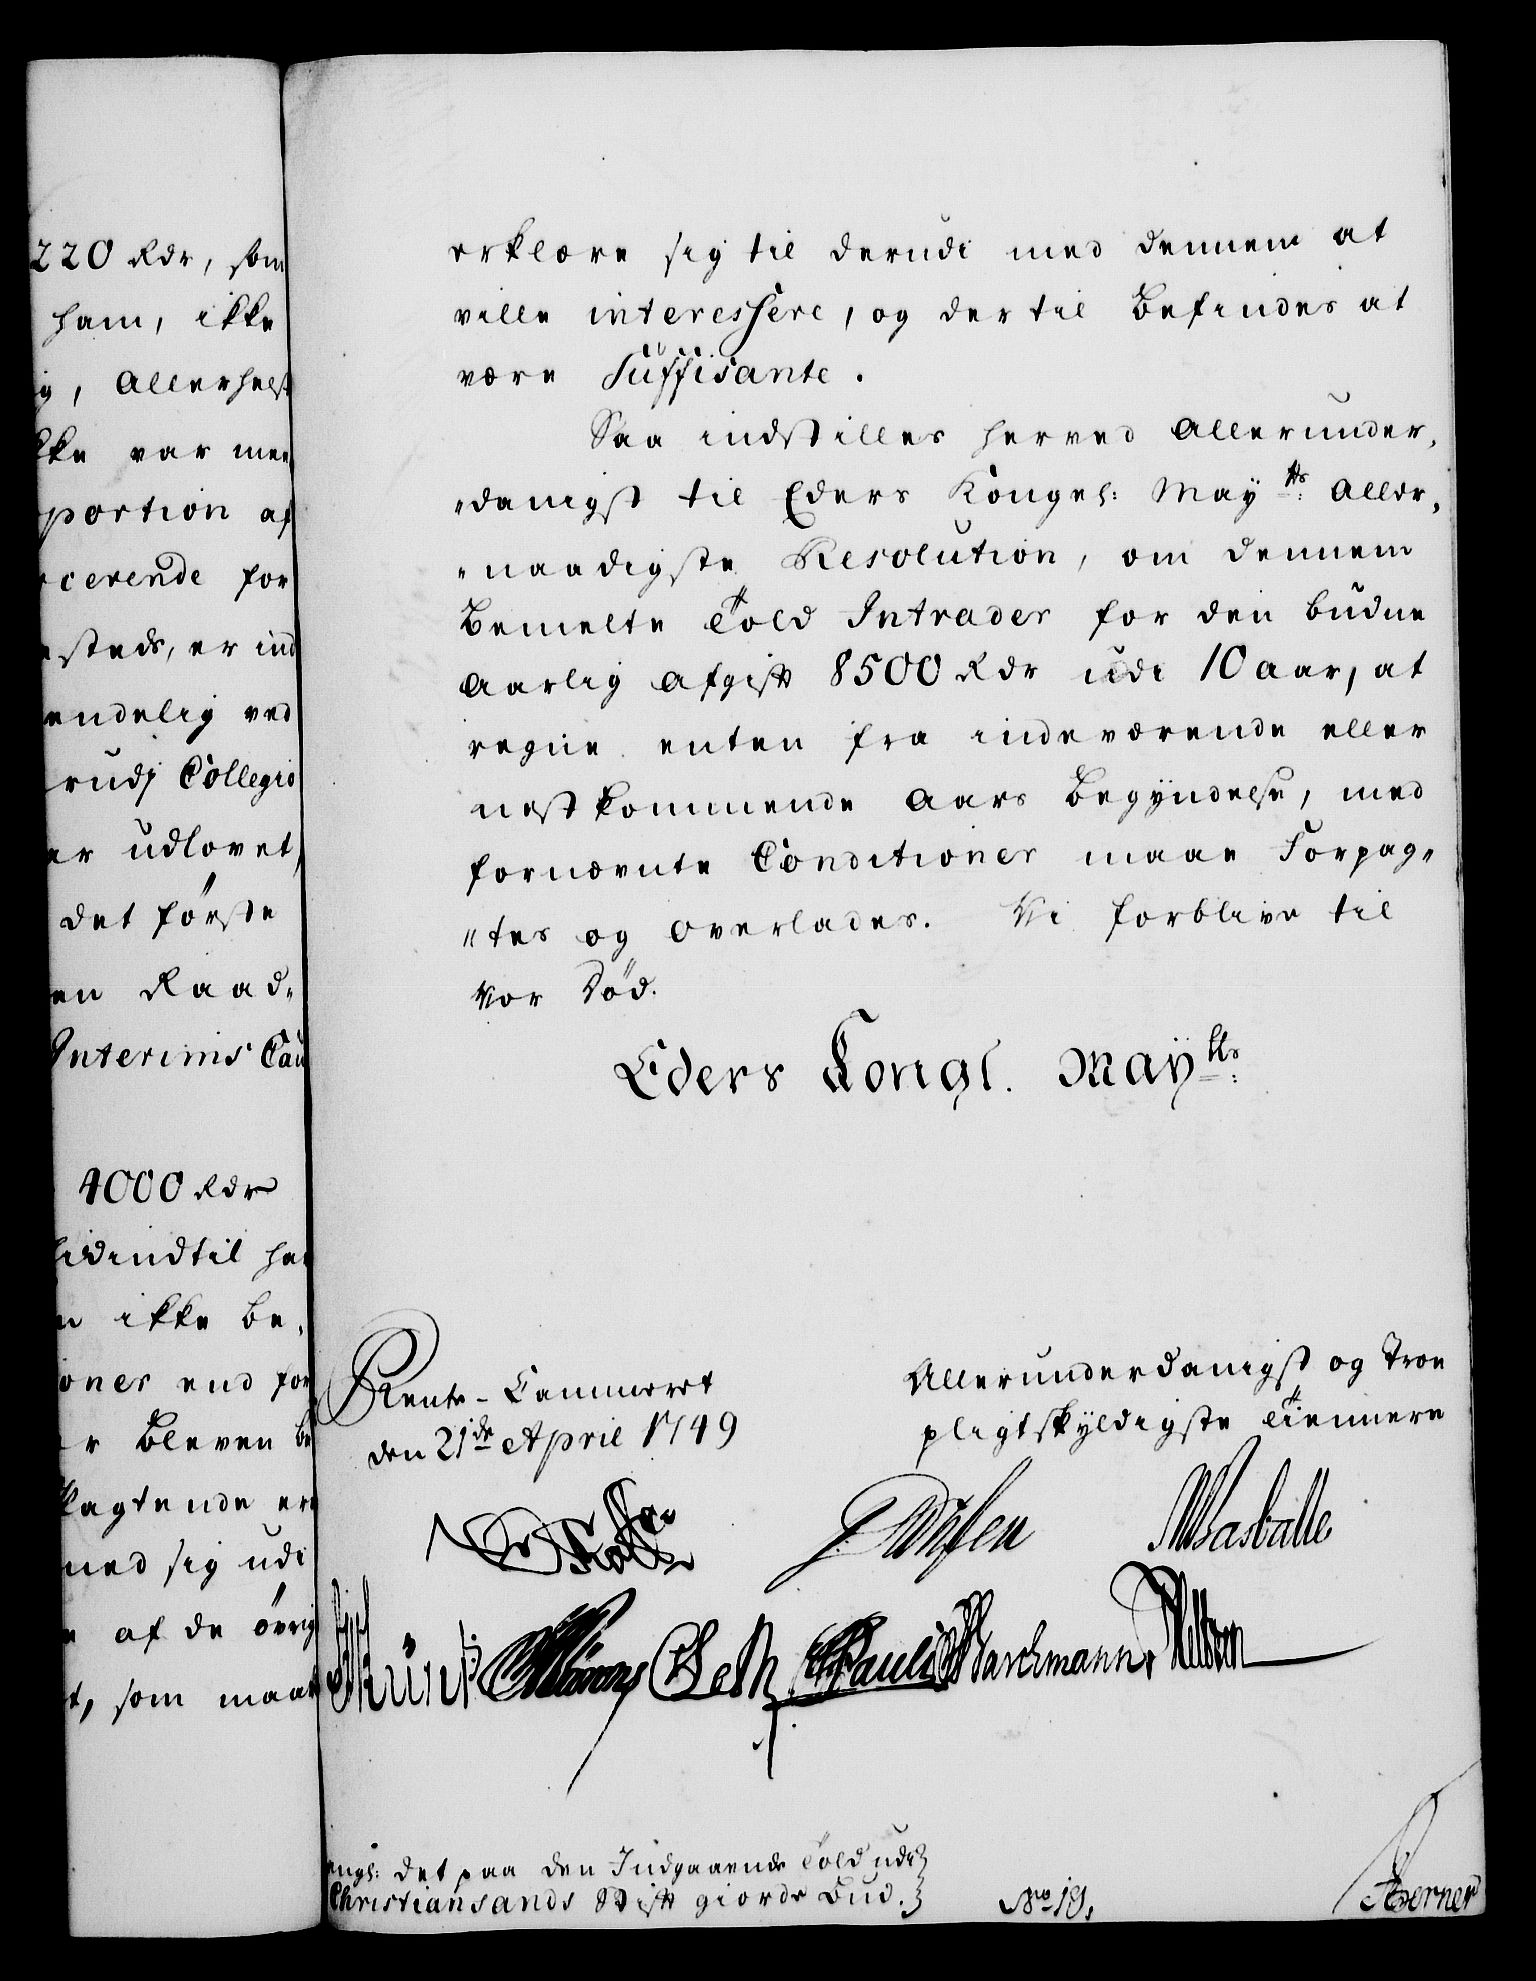 220 Rdr, som
ham, ikke
ig, Allerhelst
kke var meer
portion af
cerende for
steds, er ind
endelig ved
rudj Collegio
er udlovet,
det første
en Raad„
Interims Cau
4000 Rdr
hidindtil ha
n ikke be„
oner end for
er bleven be
pagtende er
med sig udi
e af de øvrig
t, som maat
erklære sig til derudi med dennem at
ville interessere, og dertil befindes at
være Suffisante.
Saa indstilles herved Allerunder„
„danigst til Eders Kongel: Mayts: Aller„
„naadigste Resolution, om dennem
bemelte Told Intrader for den budne
aarlig Afgift 8500 Rdr udi 10 aar, at
regne enten fra indeværende eller
nestkommende Aars Begyndelse, med
fornævnte Conditioner maae Forpag„
„tes og overlades. Vi forblive til
Vor Død.
Eders Kongl. Maytts:
Rente-Cammeret
den 21de April 1749
Allerunderdanigst og Troe
pligtskyldigste Tiennere
Pauli
engl: det paa den Indgaaende Told udi
Christiansands Stift giorde Bud.
No 19.